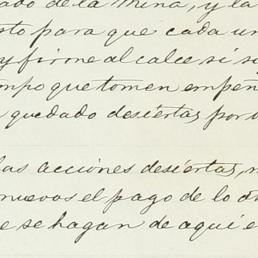 ado de la Mina, y la
sto para que cada un
y firme al calce si s
mpo que tomen empeñ
quedado desiertas por
las acciones desiertas,
nuevos el pago de lo
e se hagan de aqui e